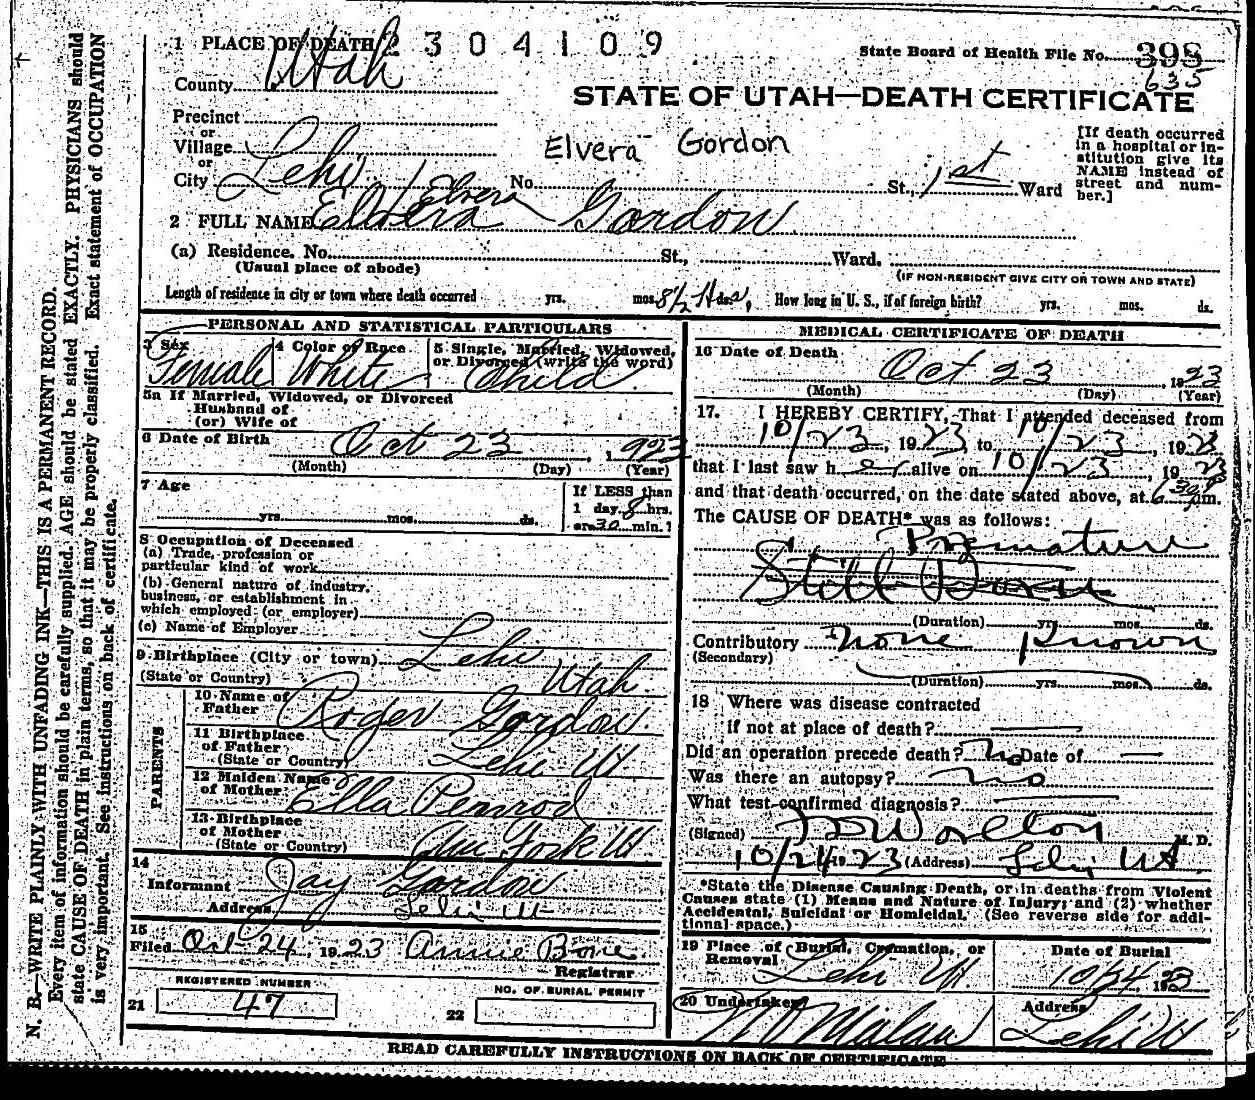 1 PLACE OF DEATH 2 3 0 4 1 0 9
State Board of Health File No. 398
635
County Utah
STATE OF UTAH—DEATH CERTIFICATE
Precinct
or
Village
or
City Lehi No. St., 1st Ward
Elvera Gordon
[If death occurred in a hospital or institution give its NAME instead of street and number.]
Elvera
2 FULL NAME Elvera Gordon
(a) Residence. No. St., Ward.
(Usual place of abode) (IF NON-RESIDENT GIVE CITY OR TOWN AND STATE)
Length of residence in city or town where death occurred yrs. mos. 8½ H ds. How long in U. S., if of foreign birth? yrs. mos. ds.
PERSONAL AND STATISTICAL PARTICULARS
3 Sex 4 Color or Race 5 Single, Married, Widowed, or Divorced (write the word)
Female White Child
5a If Married, Widowed, or Divorced
Husband of
(or) Wife of
6 Date of Birth Oct 23, 1923
(Month) (Day) (Year)
7 Age
yrs. mos. ds.
If LESS than
1 day, 8 hrs.
or 30 min.?
8 Occupation of Deceased
(a) Trade, profession or
particular kind of work
(b) General nature of industry,
business, or establishment in
which employed (or employer)
(c) Name of Employer
9 Birthplace (City or town) Lehi
(State or Country) Utah
PARENTS
10 Name of
Father Roger Gordon
11 Birthplace
of Father Lehi Ut
(State or Country)
12 Maiden Name
of Mother Ella Penrod
13 Birthplace
of Mother Am Fork Ut
(State or Country)
14
Informant Jay Gordon
Address Lehi Ut
15
Filed Oct 24, 1923 Annie Bone
Registrar
REGISTERED NUMBER
21 47
NO. OF BURIAL PERMIT
22
MEDICAL CERTIFICATE OF DEATH
16 Date of Death
Oct 23, 1923
(Month) (Day) (Year)
17. I HEREBY CERTIFY, That I attended deceased from
10/23, 1923 to 10/23, 1923
that I last saw her alive on 10/23, 1923
and that death occurred, on the date stated above, at 6 30 p m.
The CAUSE OF DEATH* was as follows:
Premature
Still Born
(Duration) yrs. mos. ds.
Contributory none known
(Secondary)
(Duration) yrs. mos. ds.
18 Where was disease contracted
if not at place of death?
Did an operation precede death? No Date of
Was there an autopsy? no
What test confirmed diagnosis?
(Signed) M. D.
10/24 1923 (Address) Lehi Ut.
*State the Disease Causing Death, or in deaths from Violent
Causes state (1) Means and Nature of Injury; and (2) whether
Accidental, Suicidal or Homicidal. (See reverse side for additional space.)
19 Place of Burial, Cremation, or Date of Burial
Removal Lehi Ut 10/24, 1923
20 Undertaker Address
Lehi Ut
READ CAREFULLY INSTRUCTIONS ON BACK OF CERTIFICATE
N. B.—WRITE PLAINLY WITH UNFADING INK—THIS IS A PERMANENT RECORD.
Every item of information should be carefully supplied. AGE should be stated EXACTLY. PHYSICIANS should
state CAUSE OF DEATH in plain terms, so that it may be properly classified. Exact statement of OCCUPATION
is very important. See instructions on back of certificate.